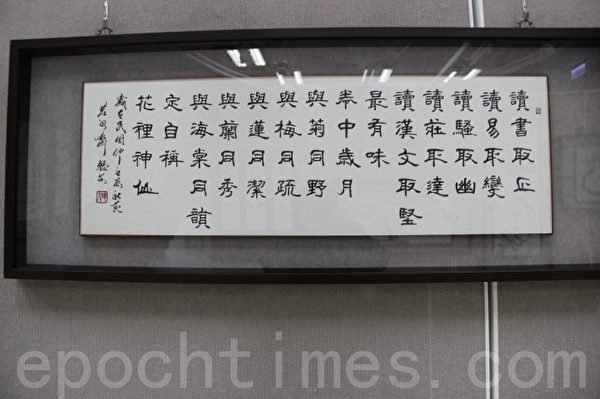 讀書取正
讀易取變
讀騷取幽
讀莊取達
讀漢文取堅
最有味
卷中歲月
與菊同野
與梅同疏
與蓮同潔
與蘭同秀
與海棠同韻
定自稱
花裡神仙
歲在民國 壬辰秋
epochtimes.com